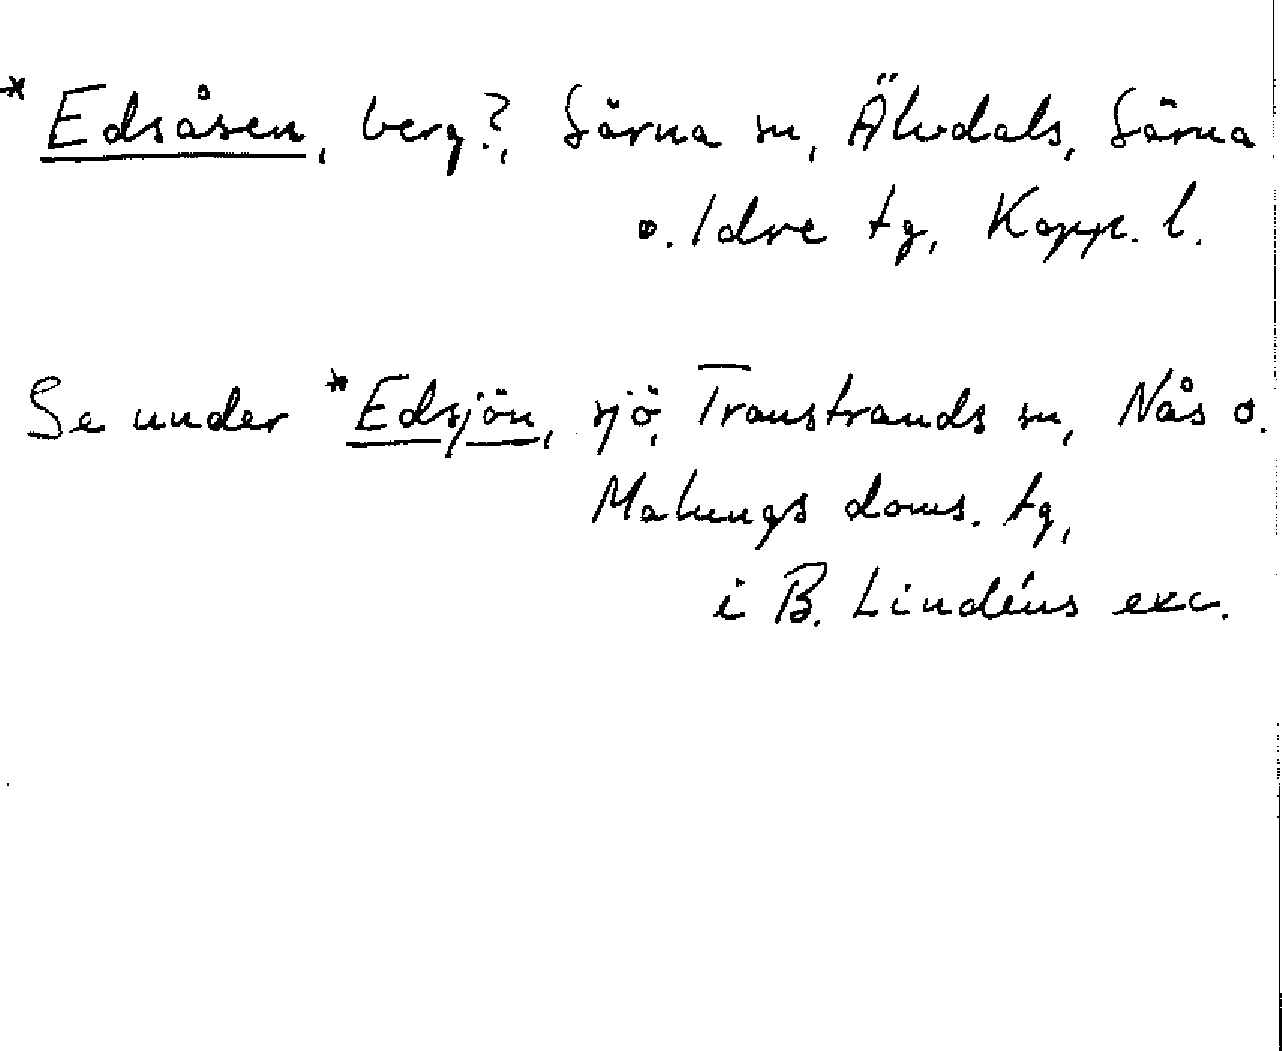 * Edsåsen, berg?, Särna sn, Älvdals, Särna
o. Idre tg, Kopp. l.
Se under *Edsjön, sjö, Transtrands sn, Nås o.
Malungs doms. tg,
i B. Lindéns exc.